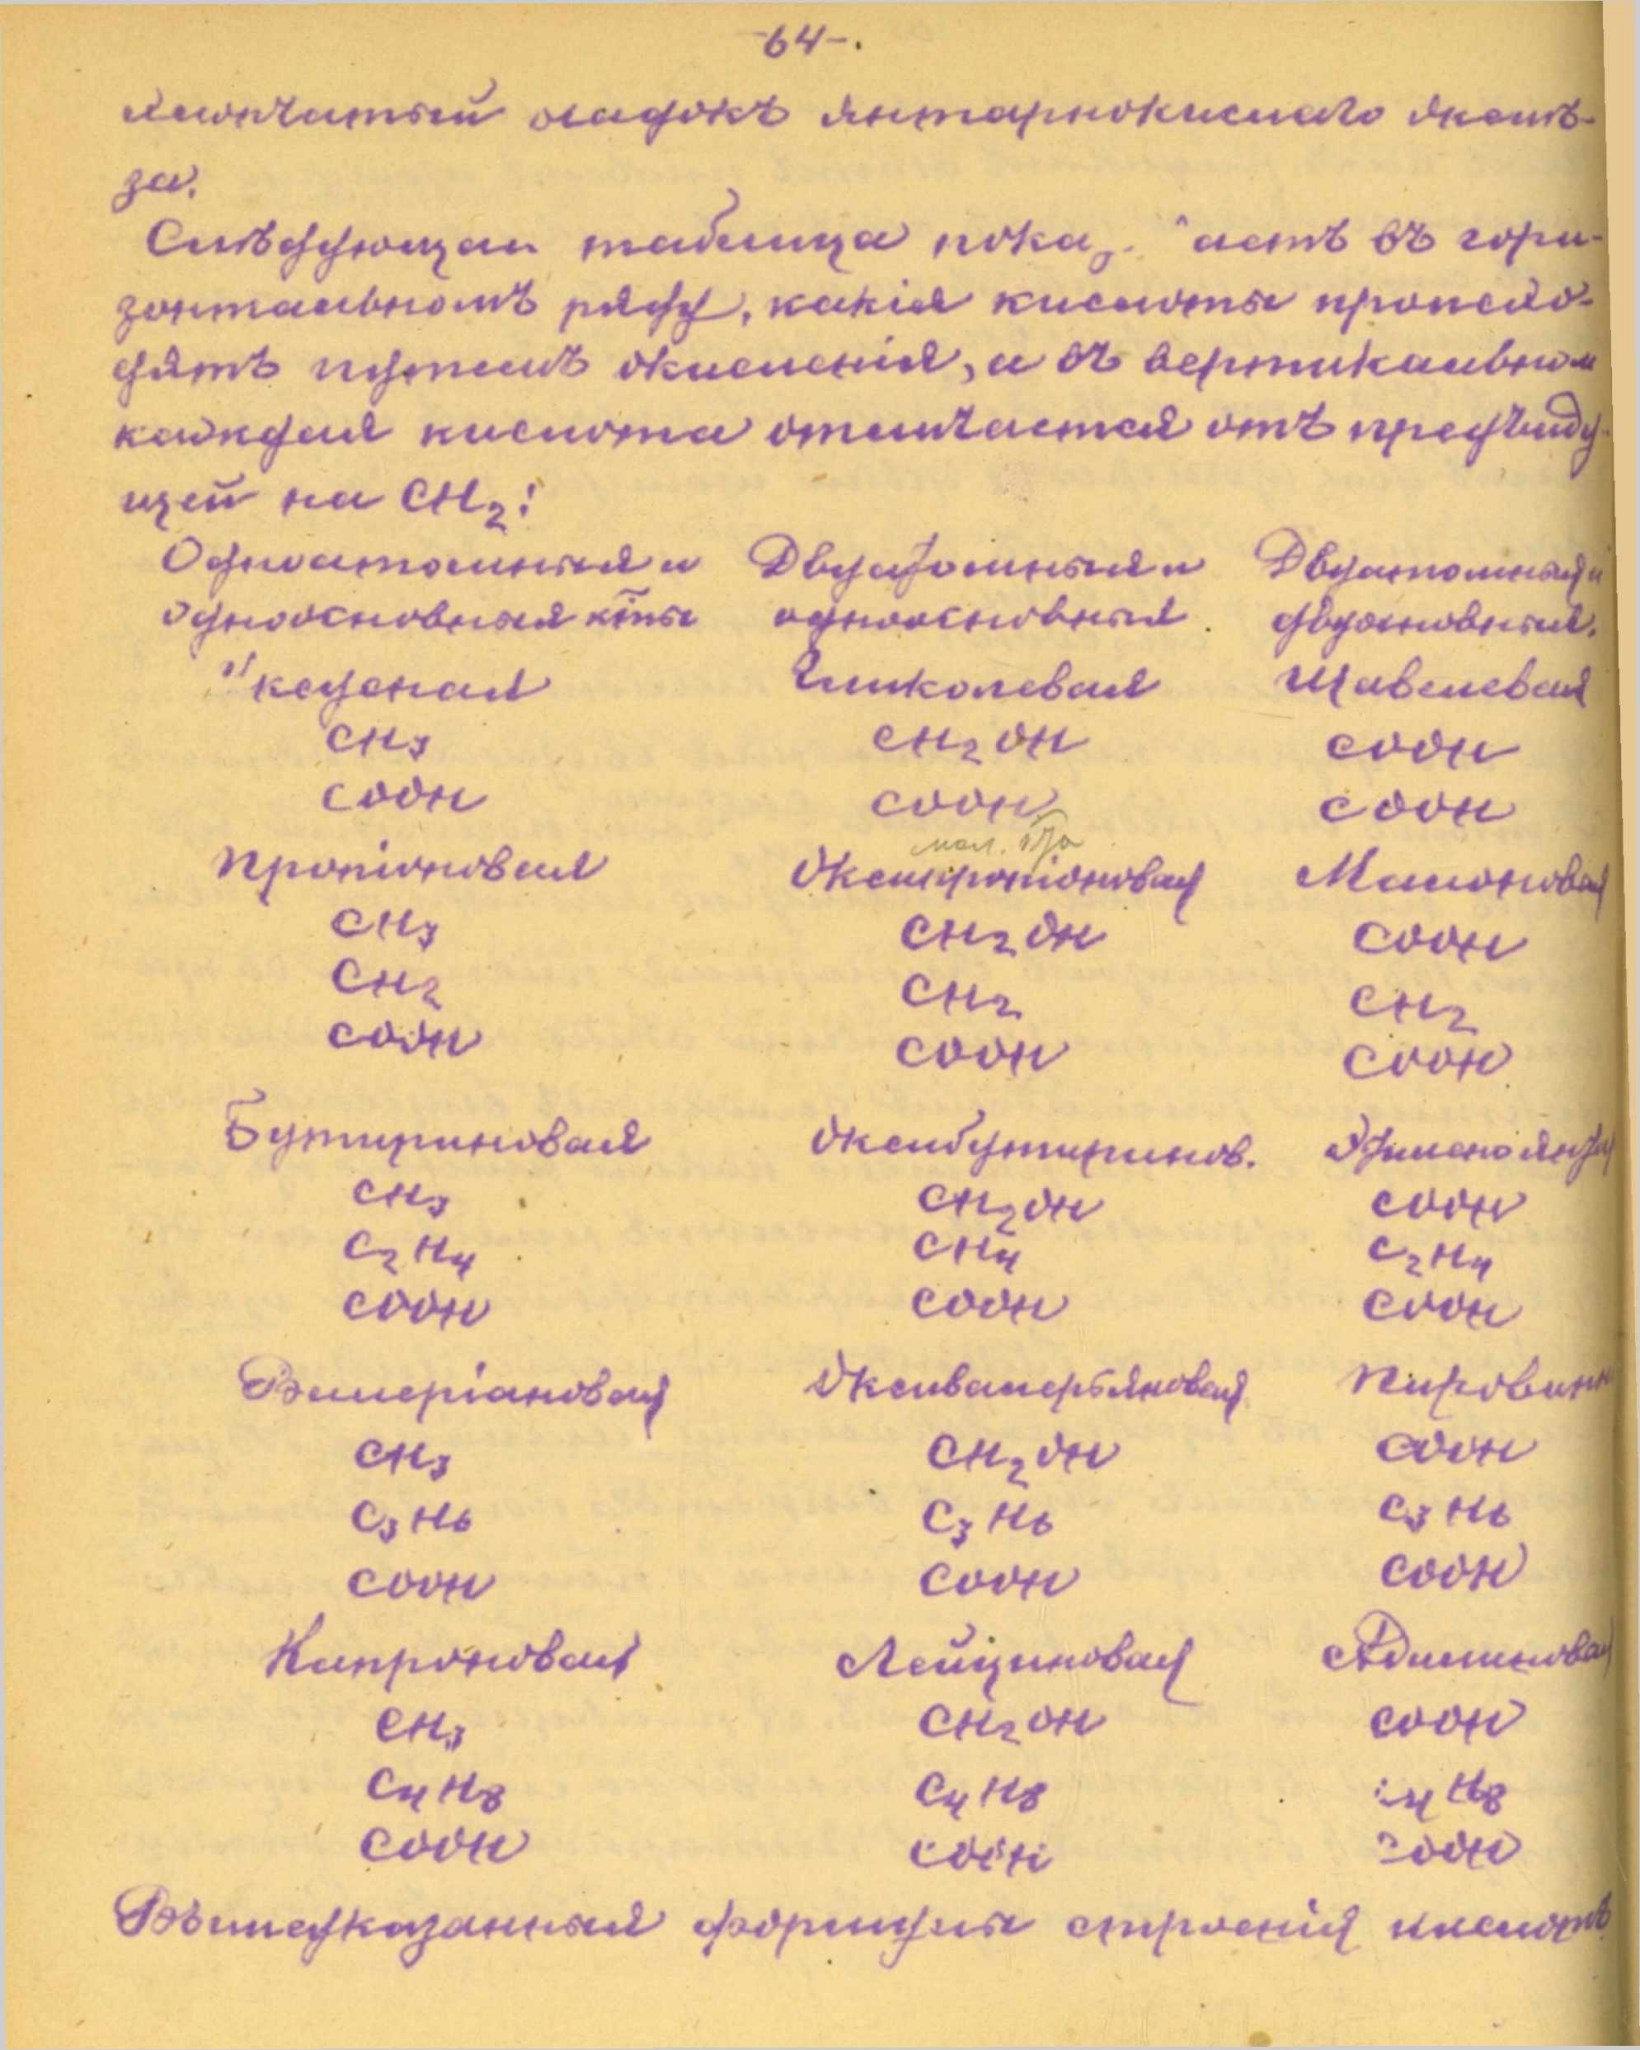 -64-.
хлопчатый осадокъ янтарнокислаго желѣ-
за.
Слѣдующая таблица показ аетъ въ гори-
зонтальномъ ряду, какія кислоты происхо-
дятъ путемъ окисленія, а въ вертикальном
каждая кислота отличается отъ предъиду-
щей на CH2:
Одноатомныя и Двуатомныя и Двуатомныя и
одноосновныя к̃ты одноосновныя. двуосновныя.
Уксусная Гликолевая Щавелевая
CH3 CH2OH COOH
COOH COOH COOH
мол.
Пропіоновая Оксипропіоновая Малоновая
CH3 CH2OH COOH
CH2 CH2 CH2
COOH COOH COOH
Бутириновая Оксибутиринов. Этиленоянт
CH3 CH2OH COOH
C2H4 CH4 C2H4
COOH COOH COOH
Валеріановая Оксивалерьяновая Пировинн
CH3 CH2OH COOH
C3H6 C3H6 C3H6
COOH COOH COOH
Капроновая Лейциновая Адипиновая
CH3 CH2OH COOH
C4H8 C4H8 C4H8
COOH COOH COOH
Вышеуказанныя формулы строенія кислотъ